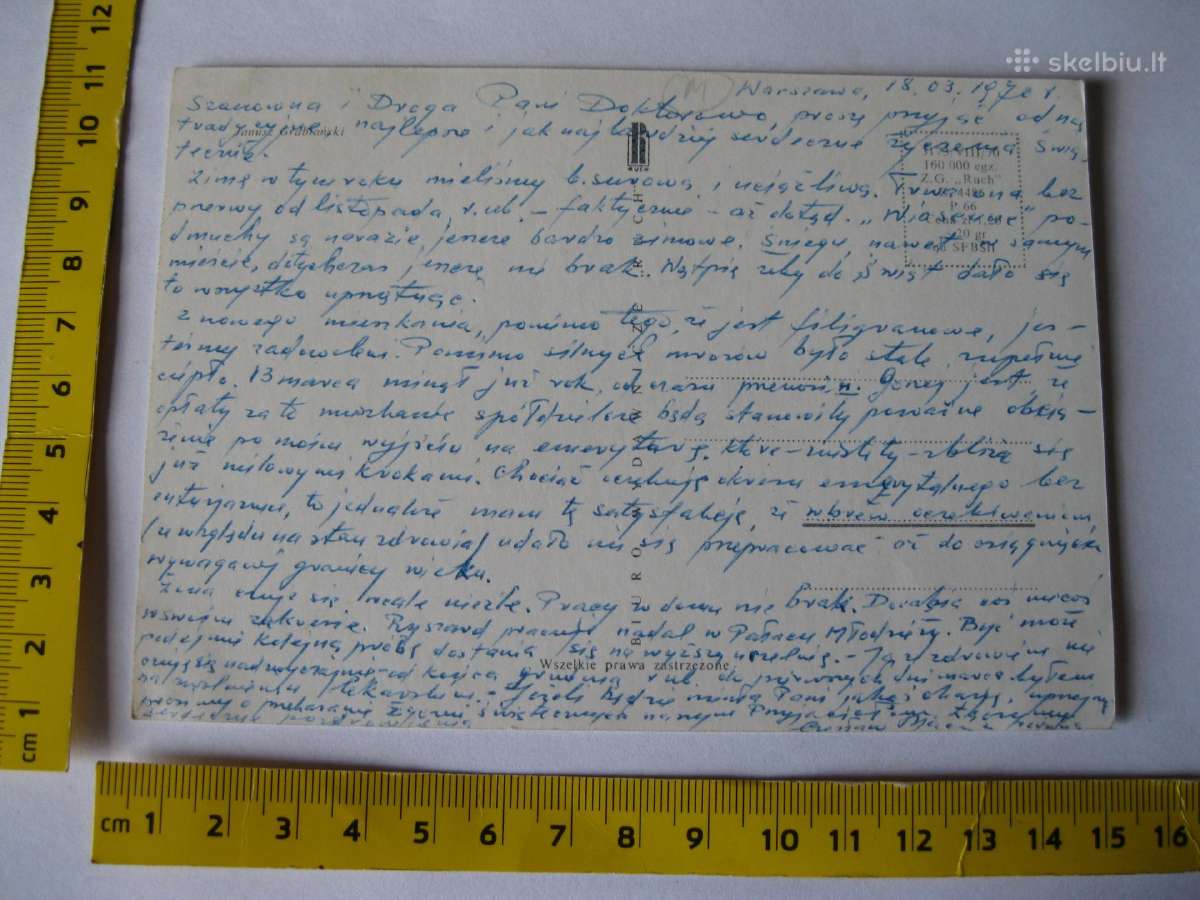 skelbiu.lt
Warszawa, 18.03.1970 r.
Szanowna i Droga Pani Doktorowo, proszę przyjąć od nas
tradycyjne najlepsze i jak najbardziej serdeczne życzenia Świą-
teczne.
Janusz Grabiański
RUCH
160 000 egz.
Z.G. „Ruch”
P-66
20 gr
Zimę w tym roku mieliśmy b. surową i uciążliwą. Trwa ona bez
przerwy od listopada r. ub. – faktycznie – aż dotąd. „Wiosenne” po-
dmuchy są narazie jeszcze bardzo zimowe. Śniegu, nawet w samym
mieście, dotychczas jeszcze nie brak. Wątpię żeby do świąt dało się
to wszystko uprzątnąć.
Z nowego mieszkania, pomimo tego, że jest filigranowe, jes-
teśmy zadowoleni. Pomimo silnych mrozów było stale zupełnie
ciepło. 13 marca minął już rok, od czasu przenosin. Gorzej jest że
opłaty za to mieszkanie spółdzielcze będą stanowiły poważne obcią-
żenie po moim wyjściu na emeryturę, które – niestety – zbliża się
już milowymi krokami. Chociaż oczekuję okresu emerytalnego bez
entuzjazmu, to jednakże mam tę satysfakcję, że wbrew oczekiwaniom,
(uwzględniając stan zdrowia) udało mi się przepracować aż do osiągnięcia
wymaganej granicy wieku.
Żona czuje się wcale nieźle. Pracy w domu nie brak. Dorabia coś niecoś
w swoim zakresie. Ryszard pracuje nadal w Pałacu Młodzieży. Być może
podejmie kolejną próbę dostania się na wyższą uczelnię. – Ja ze zdrowiem nie
czuję się nadzwyczajnie – od końca grudnia r. ub. do pierwszych dni marca byłem
na zwolnieniu lekarskim. – Jeżeli będzie miała Pani jakąś okazję, uprzejmie
prosimy o przekazanie życzeń świątecznych naszym Przyjaciołom. Łączymy
serdeczne pozdrowienia
BIURO WYDAWNICZE „RUCH”
Wszelkie prawa zastrzeżone
cm 1 2 3 4 5 6 7 8 9 10 11 12
cm 1 2 3 4 5 6 7 8 9 10 11 12 13 14 15 16